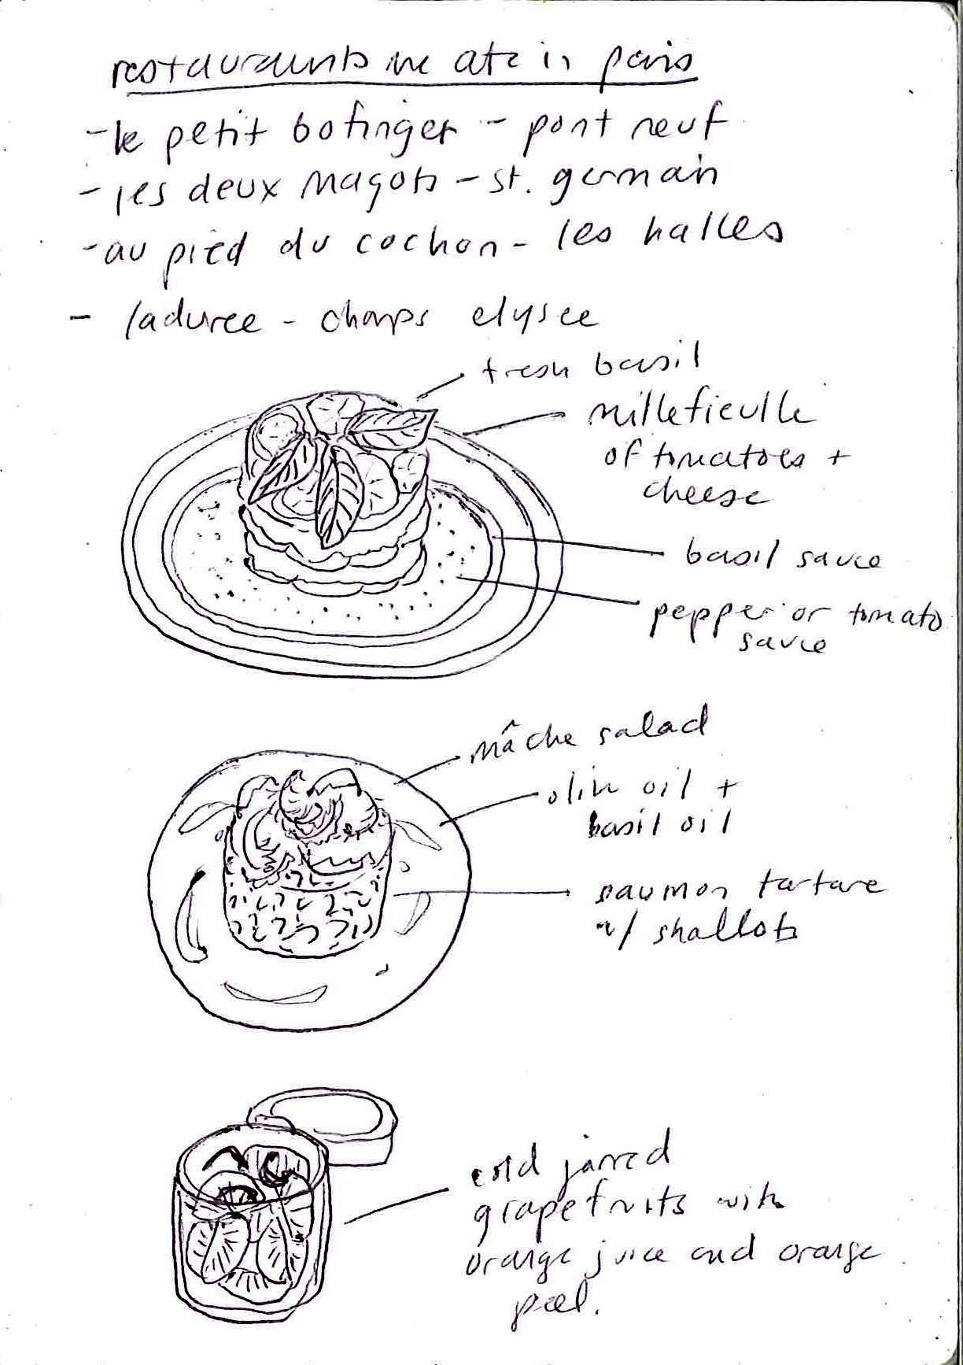 restaurants we ate in paris
- le petit bofinger - pont neuf
- les deux magots - st. germain
- au pied du cochon - les halles
- laduree - champs elysee
fresh basil
millefieulle
of tomatoes +
cheese
basil sauce
pepper or tomato
sauce
mâche salad
olive oil +
basil oil
saumon tartare
w/ shallots
cold jarred
grapefruits with
orange juice and orange
peel.